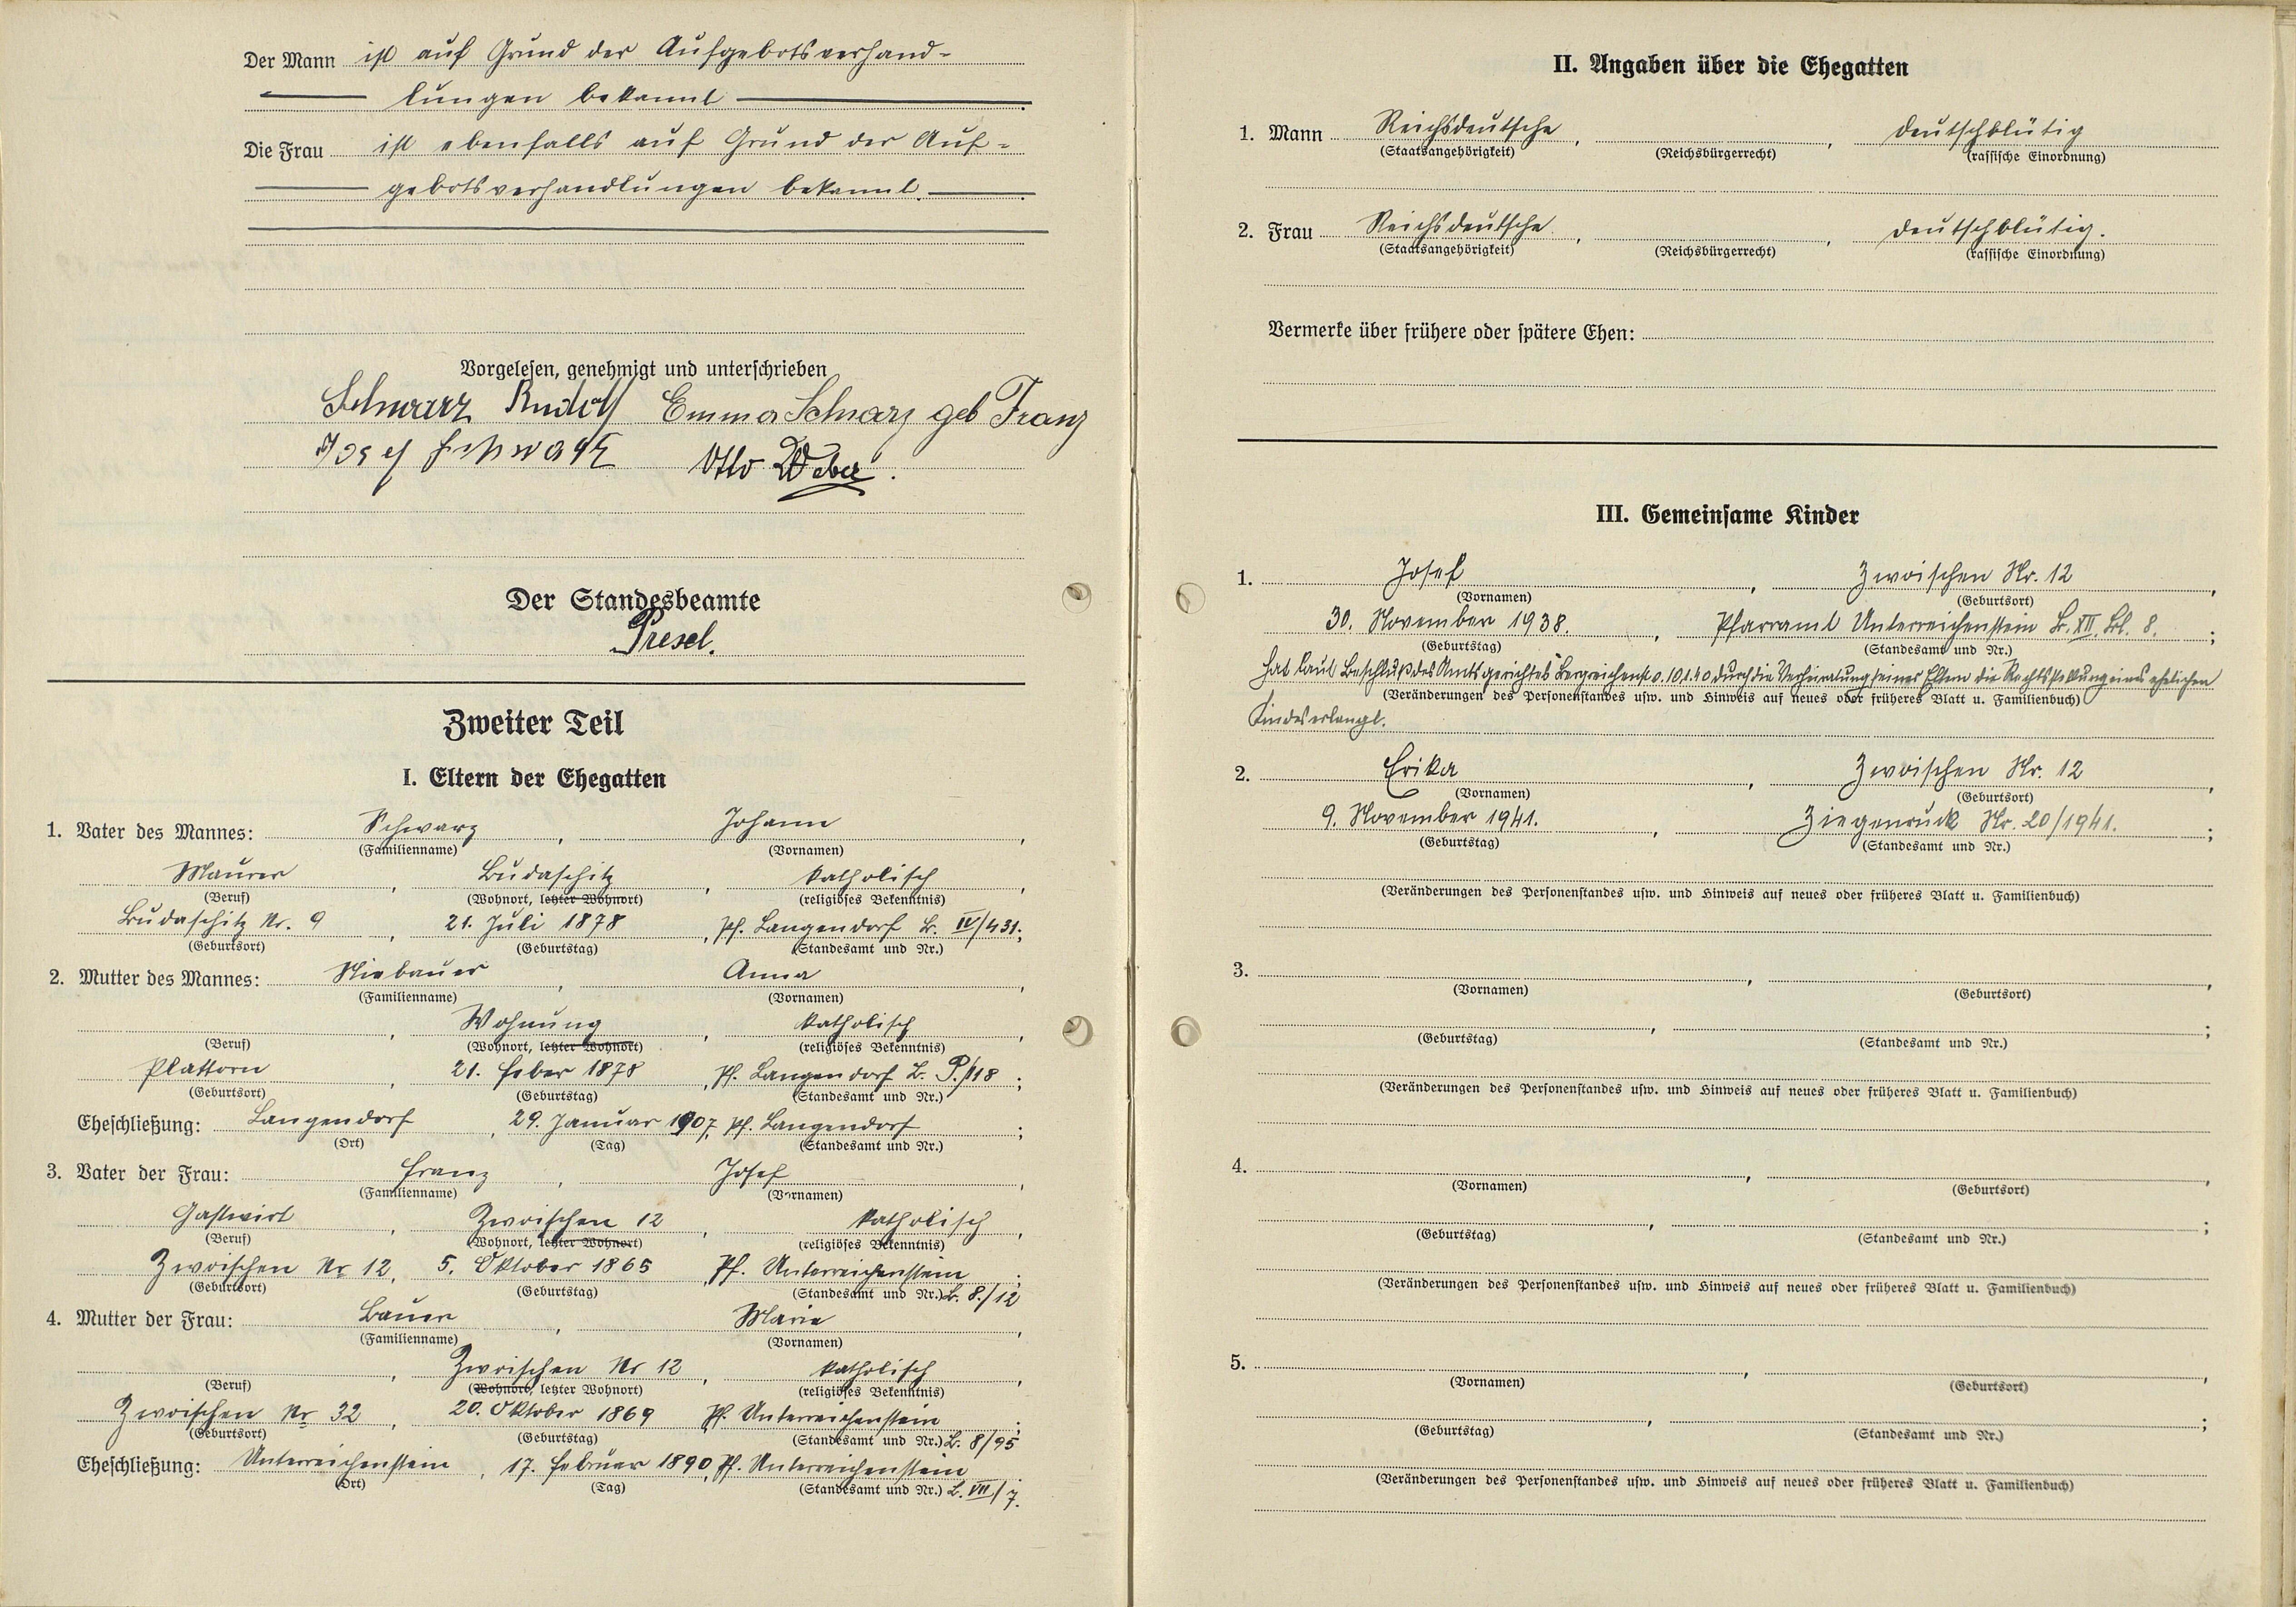 Der Mann ist auf Grund der Aufgebotsverhand-
lungen bekannt
Die Frau ist ebenfalls auf Grund der Auf-
gebotsverhandlungen bekannt.
Vorgelesen, genehmigt und unterschrieben
Schwarz Rudolf Emma Schwarz geb Franz
Josef Schwarz Otto Weber.
Der Standesbeamte
Presel.
Zweiter Teil
I. Eltern der Ehegatten
1. Vater des Mannes: Schwarz, Johann,
(Familienname) (Vornamen)
Maurer, Budaschitz, katholisch,
(Beruf) (Wohnort, letzter Wohnort) (religiöses Bekenntnis)
Budaschitz Nr. 9, 21. Juli 1878, Pf. Langendorf B. IV/431;
(Geburtsort) (Geburtstag) (Standesamt und Nr.)
2. Mutter des Mannes: Niebauer, Anna,
(Familienname) (Vornamen)
, Wohnung, katholisch,
(Beruf) (Wohnort, letzter Wohnort) (religiöses Bekenntnis)
Plattorn, 21. Feber 1878, Pf. Langendorf B. P./118;
(Geburtsort) (Geburtstag) (Standesamt und Nr.)
Eheschließung: Langendorf, 29. Januar 1907, Pf. Langendorf;
(Ort) (Tag) (Standesamt und Nr.)
3. Vater der Frau: Franz, Josef,
(Familienname) (Vornamen)
Gastwirt, Zwoischen 12, katholisch,
(Beruf) (Wohnort, letzter Wohnort) (religiöses Bekenntnis)
Zwoischen Nr 12, 5. Oktober 1865, Pf. Unterreichenstein;
(Geburtsort) (Geburtstag) (Standesamt und Nr.) B. 8./12
4. Mutter der Frau: Bauer, Marie,
(Familienname) (Vornamen)
, Zwoischen Nr 12, katholisch,
(Beruf) (Wohnort, letzter Wohnort) (religiöses Bekenntnis)
Zwoischen Nr 32, 20. Oktober 1869 Pf. Unterreichenstein;
(Geburtsort) (Geburtstag) (Standesamt und Nr.) B. 8/95
Eheschließung: Unterreichenstein, 17. Februar 1890, Pf. Unterreichenstein
(Ort) (Tag) (Standesamt und Nr.) B. VII/7.
II. Angaben über die Ehegatten
1. Mann Reichsdeutsche, , deutschblütig
(Staatsangehörigkeit) (Reichsbürgerrecht) (rassische Einordnung)
2. Frau Reichsdeutsche, , deutschblütig.
(Staatsangehörigkeit) (Reichsbürgerrecht) (rassische Einordnung)
Vermerke über frühere oder spätere Ehen:
III. Gemeinsame Kinder
1. Josef, Zwoischen Nr. 12,
(Vornamen) (Geburtsort)
30. November 1938., Pfarramt Unterreichenstein B. XII. Bl. 8.;
(Geburtstag) (Standesamt und Nr.)
hat laut Beschluß des Amtsgerichtes Bergreichenst. v. 10.1.40 durch die Verheiratung seiner Eltern die Rechtsstellung eines ehelichen
(Veränderungen des Personenstandes usw. und Hinweis auf neues oder früheres Blatt u. Familienbuch)
Kindes erlangt.
2. Erika, Zwoischen Nr. 12,
(Vornamen) (Geburtsort)
9. November 1941., Ziegenruck Nr. 20/1941.;
(Geburtstag) (Standesamt und Nr.)
(Veränderungen des Personenstandes usw. und Hinweis auf neues oder früheres Blatt u. Familienbuch)
3. , ,
(Vornamen) (Geburtsort)
, ;
(Geburtstag) (Standesamt und Nr.)
(Veränderungen des Personenstandes usw. und Hinweis auf neues oder früheres Blatt u. Familienbuch)
4. , ,
(Vornamen) (Geburtsort)
, ;
(Geburtstag) (Standesamt und Nr.)
(Veränderungen des Personenstandes usw. und Hinweis auf neues oder früheres Blatt u. Familienbuch)
5. , ,
(Vornamen) (Geburtsort)
, ;
(Geburtstag) (Standesamt und Nr.)
(Veränderungen des Personenstandes usw. und Hinweis auf neues oder früheres Blatt u. Familienbuch)